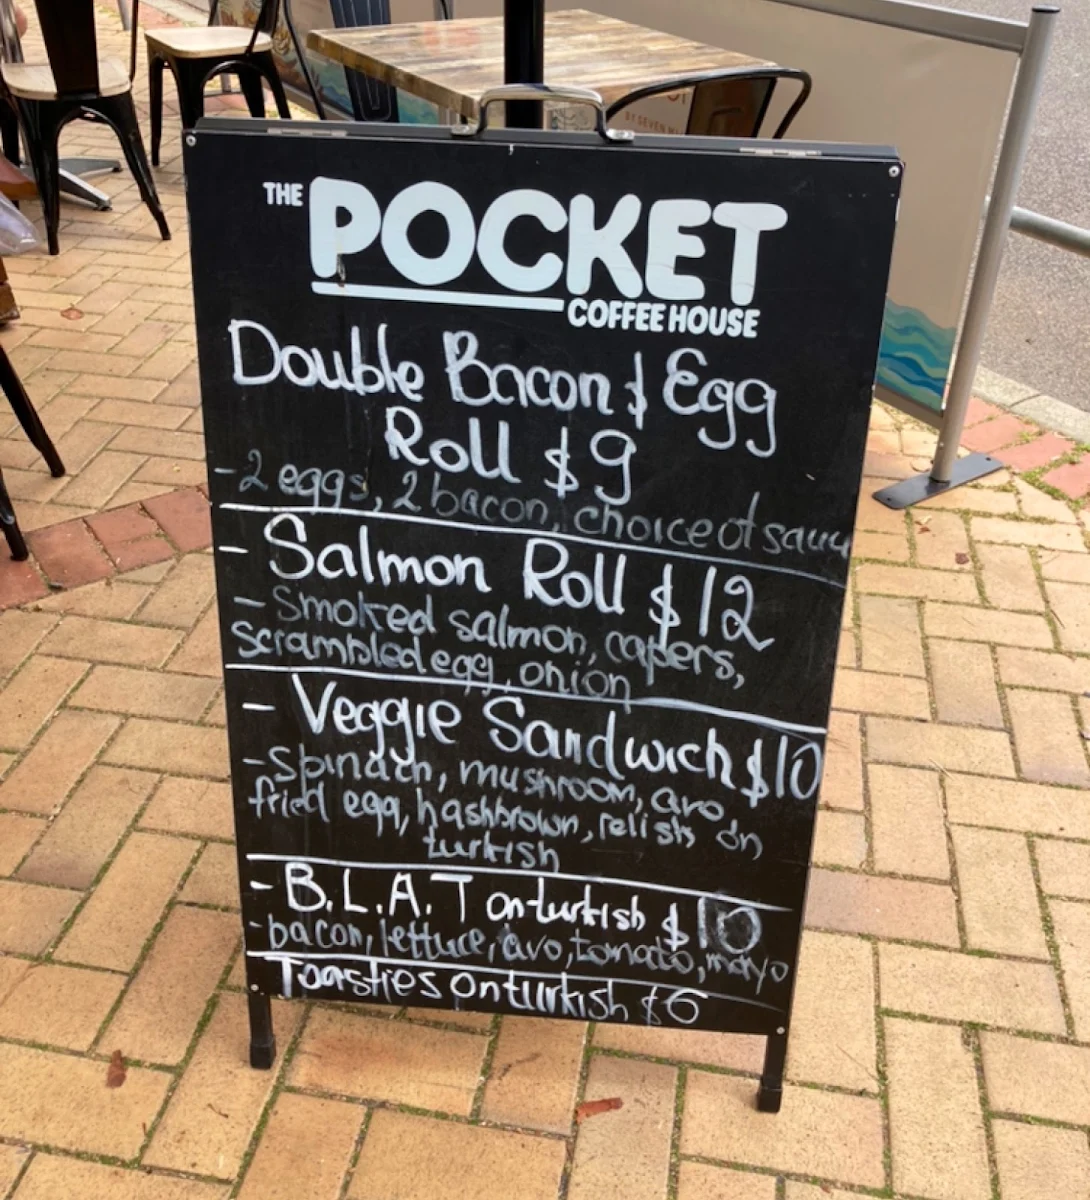 THE POCKET
COFFEE HOUSE
Double Bacon & Egg
Roll $9
- 2 eggs, 2 bacon, choice of sauce
- Salmon Roll $12
- Smoked salmon, capers,
scrambled egg, onion
- Veggie Sandwich $10
- Spinach, mushroom, avo,
fried egg, hashbrown, relish on
turkish
- B.L.A.T on turkish $10
- bacon, lettuce, avo, tomato, mayo
Toasties on turkish $6
BY SEVEN